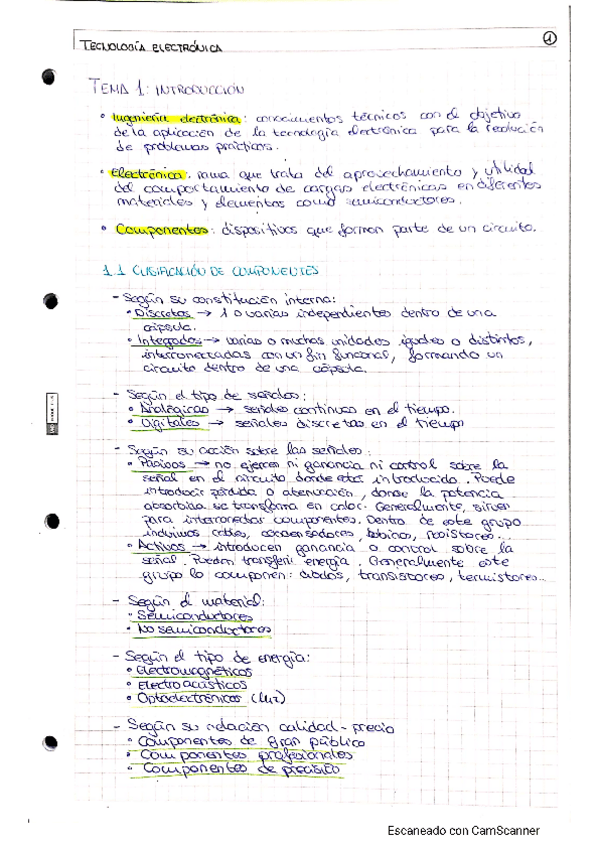 TECNOLOGÍA ELECTRÓNICA
1
TEMA 1: INTRODUCCIÓN
• Ingeniería electrónica: conocimientos técnicos con el objetivo
de la aplicación de la tecnología electrónica para la resolución
de problemas prácticos.
• Electrónica: rama que trata del aprovechamiento y utilidad
del comportamiento de cargas electrónicas en diferentes
materiales y elementos como semiconductores.
• Componentes: dispositivos que forman parte de un circuito.
1.1 CLASIFICACIÓN DE COMPONENTES
- Según su constitución interna:
• Discretos → 1 o varios independientes dentro de una
cápsula.
• Integrados → varias o muchas unidades iguales o distintas,
interconectadas con un fin funcional, formando un
circuito dentro de una cápsula.
- Según el tipo de señales:
• Analógicas → señales continuas en el tiempo.
• Digitales → señales discretas en el tiempo
- Según su acción sobre las señales:
• Pasivos → no ejercen ni ganancia ni control sobre la
señal en el circuito donde están introducido. Puede
introducir pérdida o atenuación, donde la potencia
absorbida se transforma en calor. Generalmente, sirven
para interconectar componentes. Dentro de este grupo
incluimos cables, condensadores, bobinas, resistores...
• Activos → introducen ganancia o control sobre la
señal. Pueden transferir energía. Generalmente este
grupo lo componen: diodos, transistores, termistores...
- Según el material:
• Semiconductores
• No semiconductores
- Según el tipo de energía:
• Electromagnéticos
• Electroacústicos
• Optoelectrónicos (luz)
- Según su relación calidad-precio
• Componentes de gran público
• Componentes profesionales
• Componentes de precisión
Escaneado con CamScanner